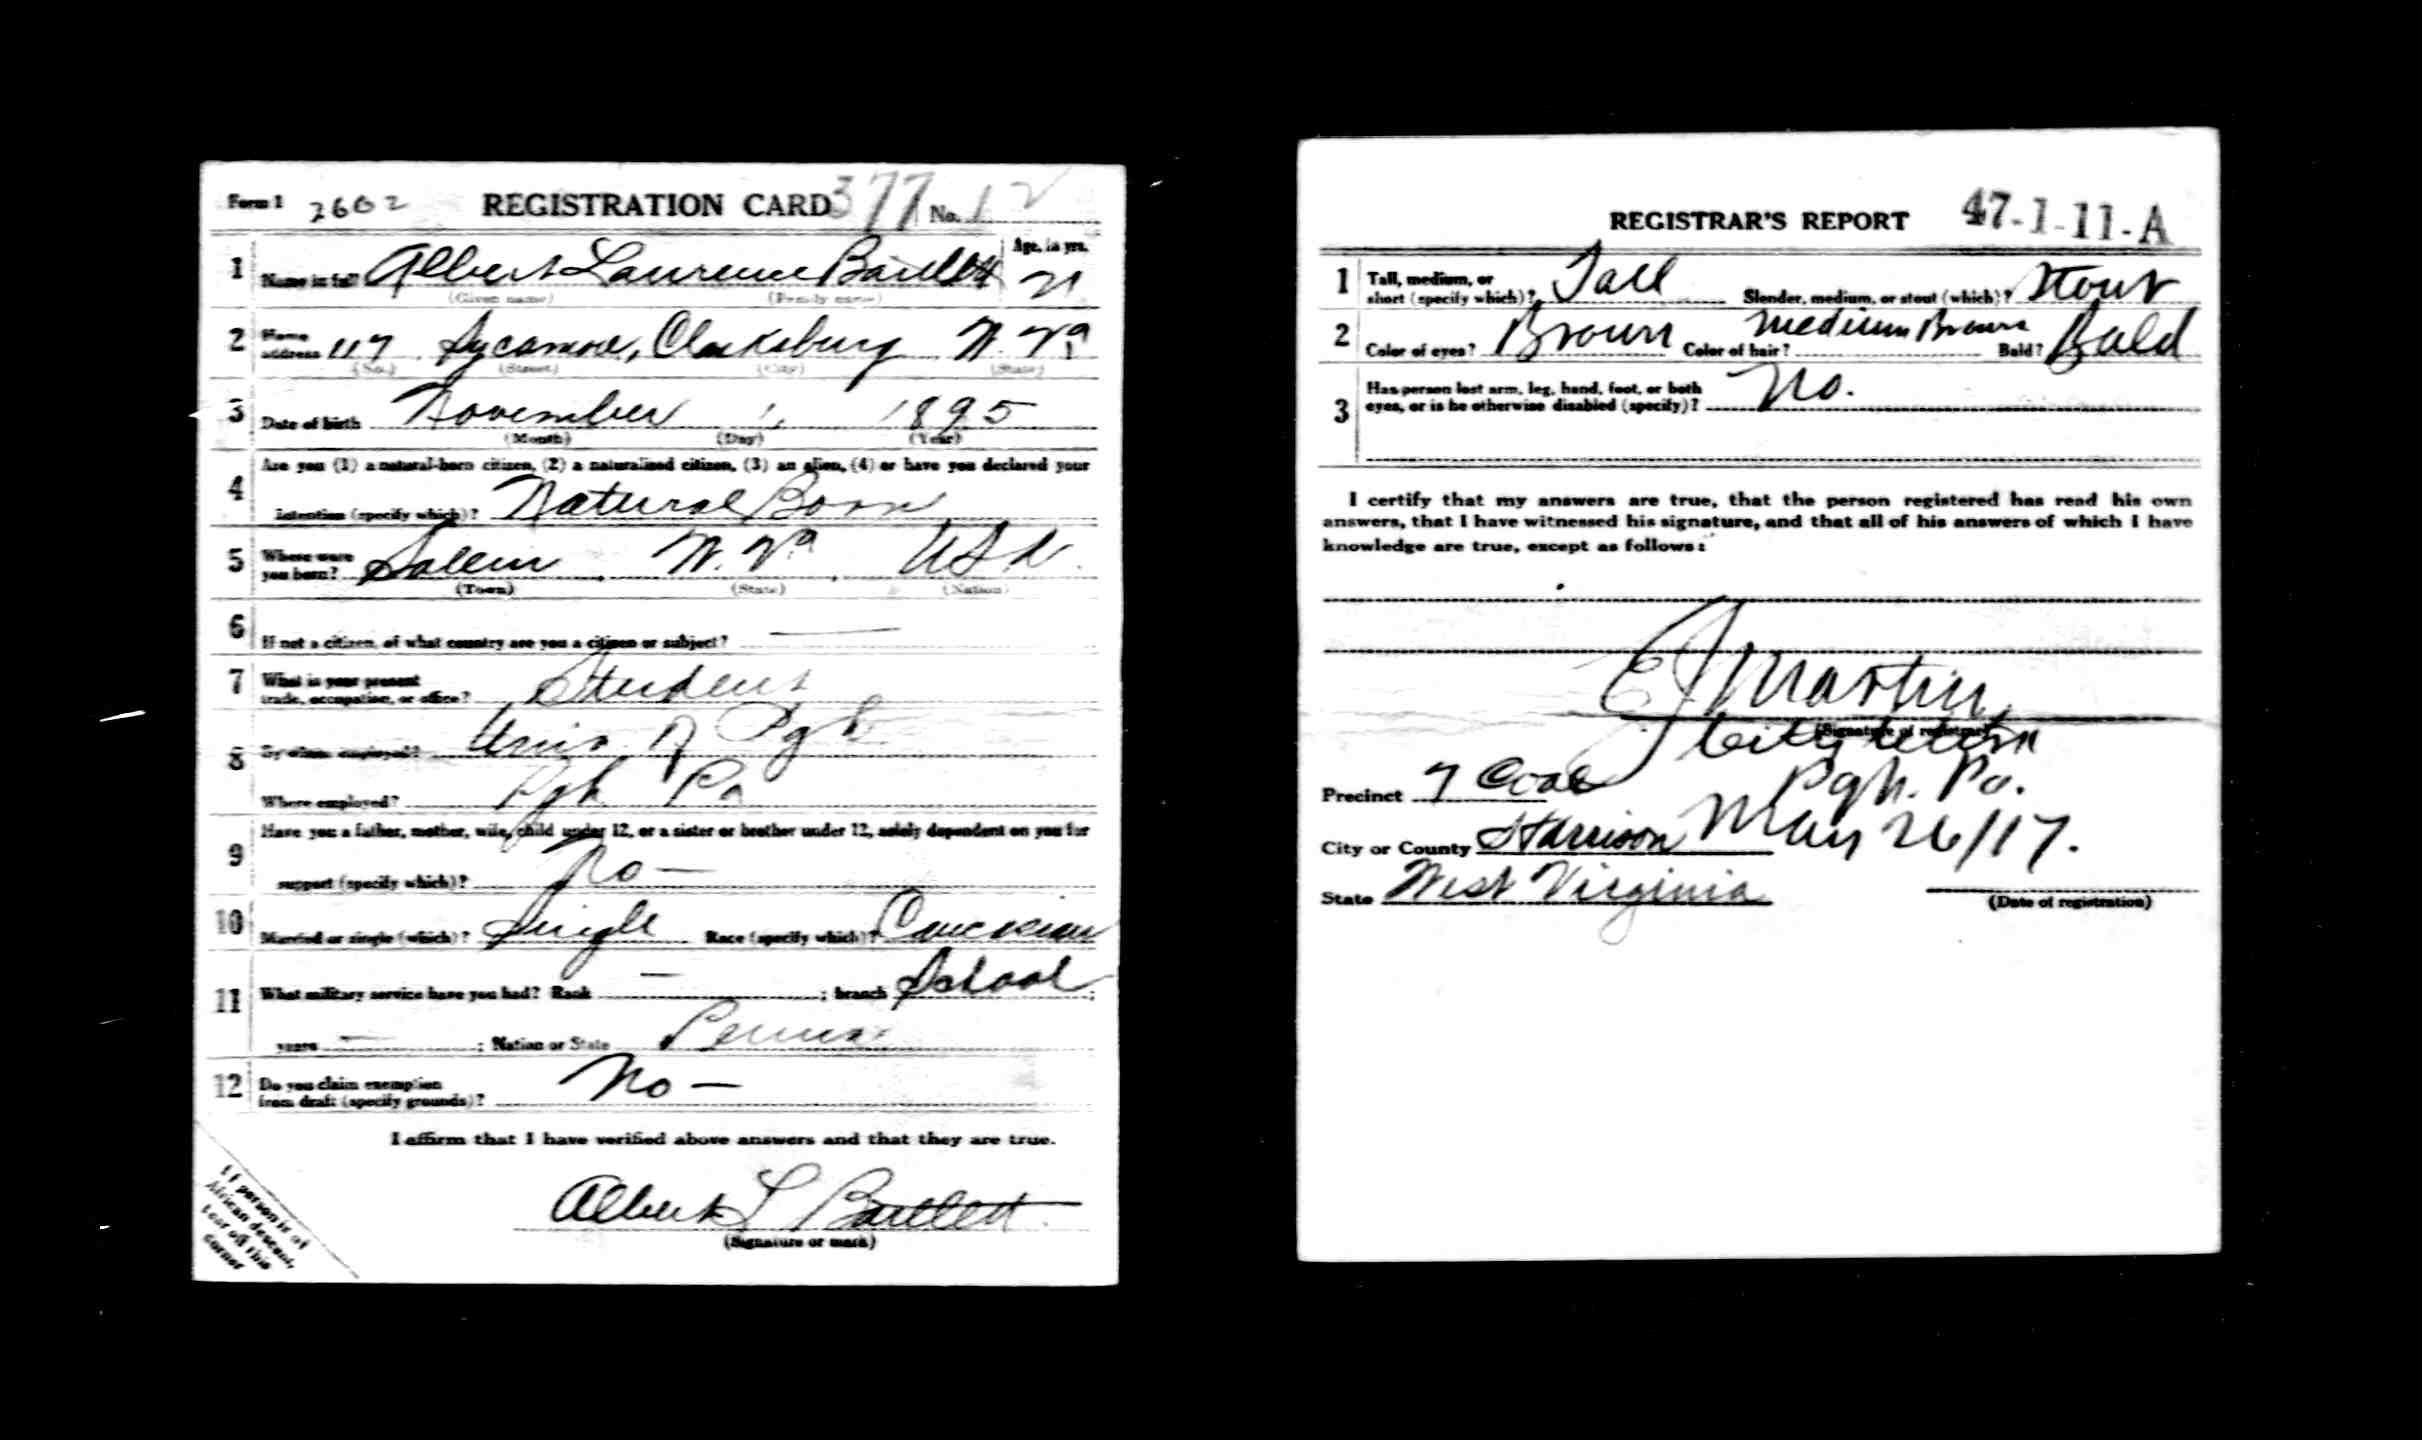 Form 1 2602 REGISTRATION CARD 377 No. 12
1 Name in full Albert Laurence Bartlett Age, in yrs. 21
(Given name) (Family name)
2 Home address 117 Sycamore, Clarksburg W. Va
(No.) (Street) (City) (State)
3 Date of birth November 1, 1895
(Month) (Day) (Year)
4 Are you (1) a natural-born citizen, (2) a naturalized citizen, (3) an alien, (4) or have you declared your
intention (specify which)? Natural Born
5 Where were you born? Salem W. Va USA.
(Town) (State) (Nation)
6 If not a citizen, of what country are you a citizen or subject? —
7 What is your present trade, occupation, or office? Student
8 By whom employed? Univ of Pgh
Where employed? Pgh Pa
9 Have you a father, mother, wife, child under 12, or a sister or brother under 12, solely dependent on you for
support (specify which)? No —
10 Married or single (which)? Single Race (specify which)? Caucasian
11 What military service have you had? Rank — ; branch School ;
years — ; Nation or State Penna
12 Do you claim exemption from draft (specify grounds)? No —
I affirm that I have verified above answers and that they are true.
Albert L Bartlett
(Signature or mark)
If person is of
African descent,
tear off this
corner
REGISTRAR'S REPORT 47-1-11-A
1 Tall, medium, or short (specify which)? Tall Slender, medium, or stout (which)? Stout
2 Color of eyes? Brown Color of hair? Medium Brown Bald? Bald
3 Has person lost arm, leg, hand, foot, or both eyes, or is he otherwise disabled (specify)? No.
I certify that my answers are true, that the person registered has read his own
answers, that I have witnessed his signature, and that all of his answers of which I have
knowledge are true, except as follows:
E J Martin
(Signature of registrar)
City Clerk
Precinct 7 Coal Pgh. Pa.
City or County Harrison May 26/17.
State West Virginia
(Date of registration)